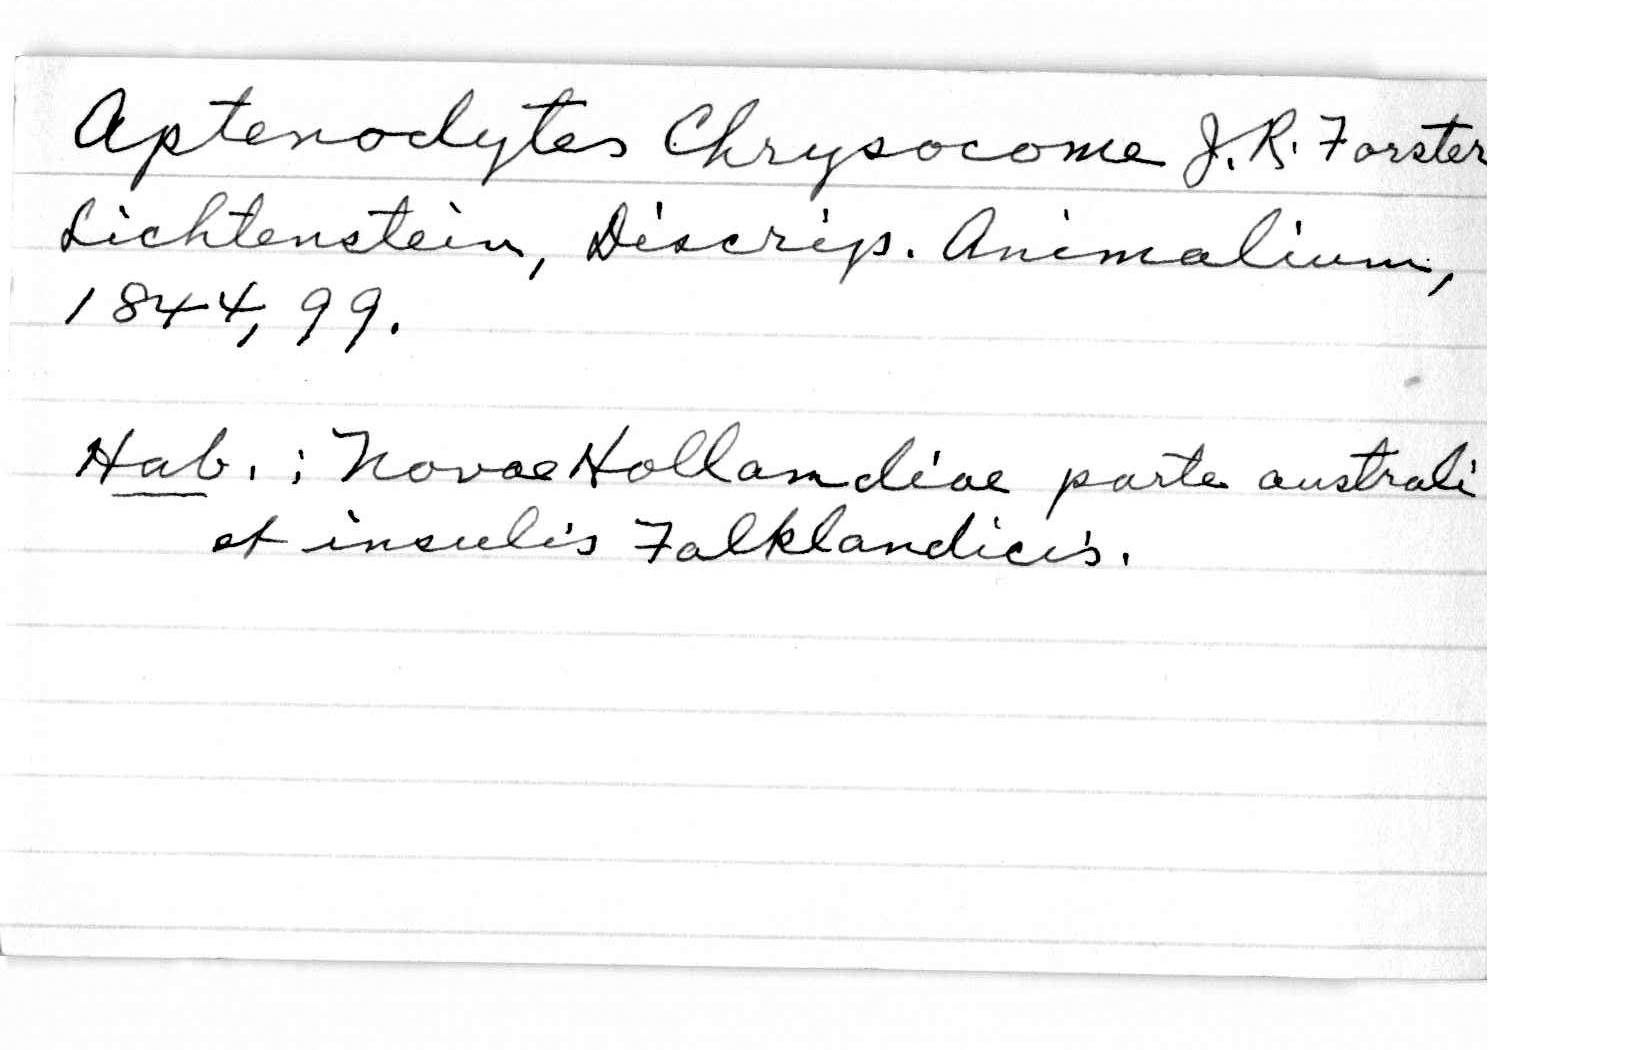 Aptenodytes Chrysocome J. R. Forster
Lichtenstein, Discrip. Animalium,
1844, 99.
Hab. : Novae Hollandiae parte australi
et insulis Falklandicis.